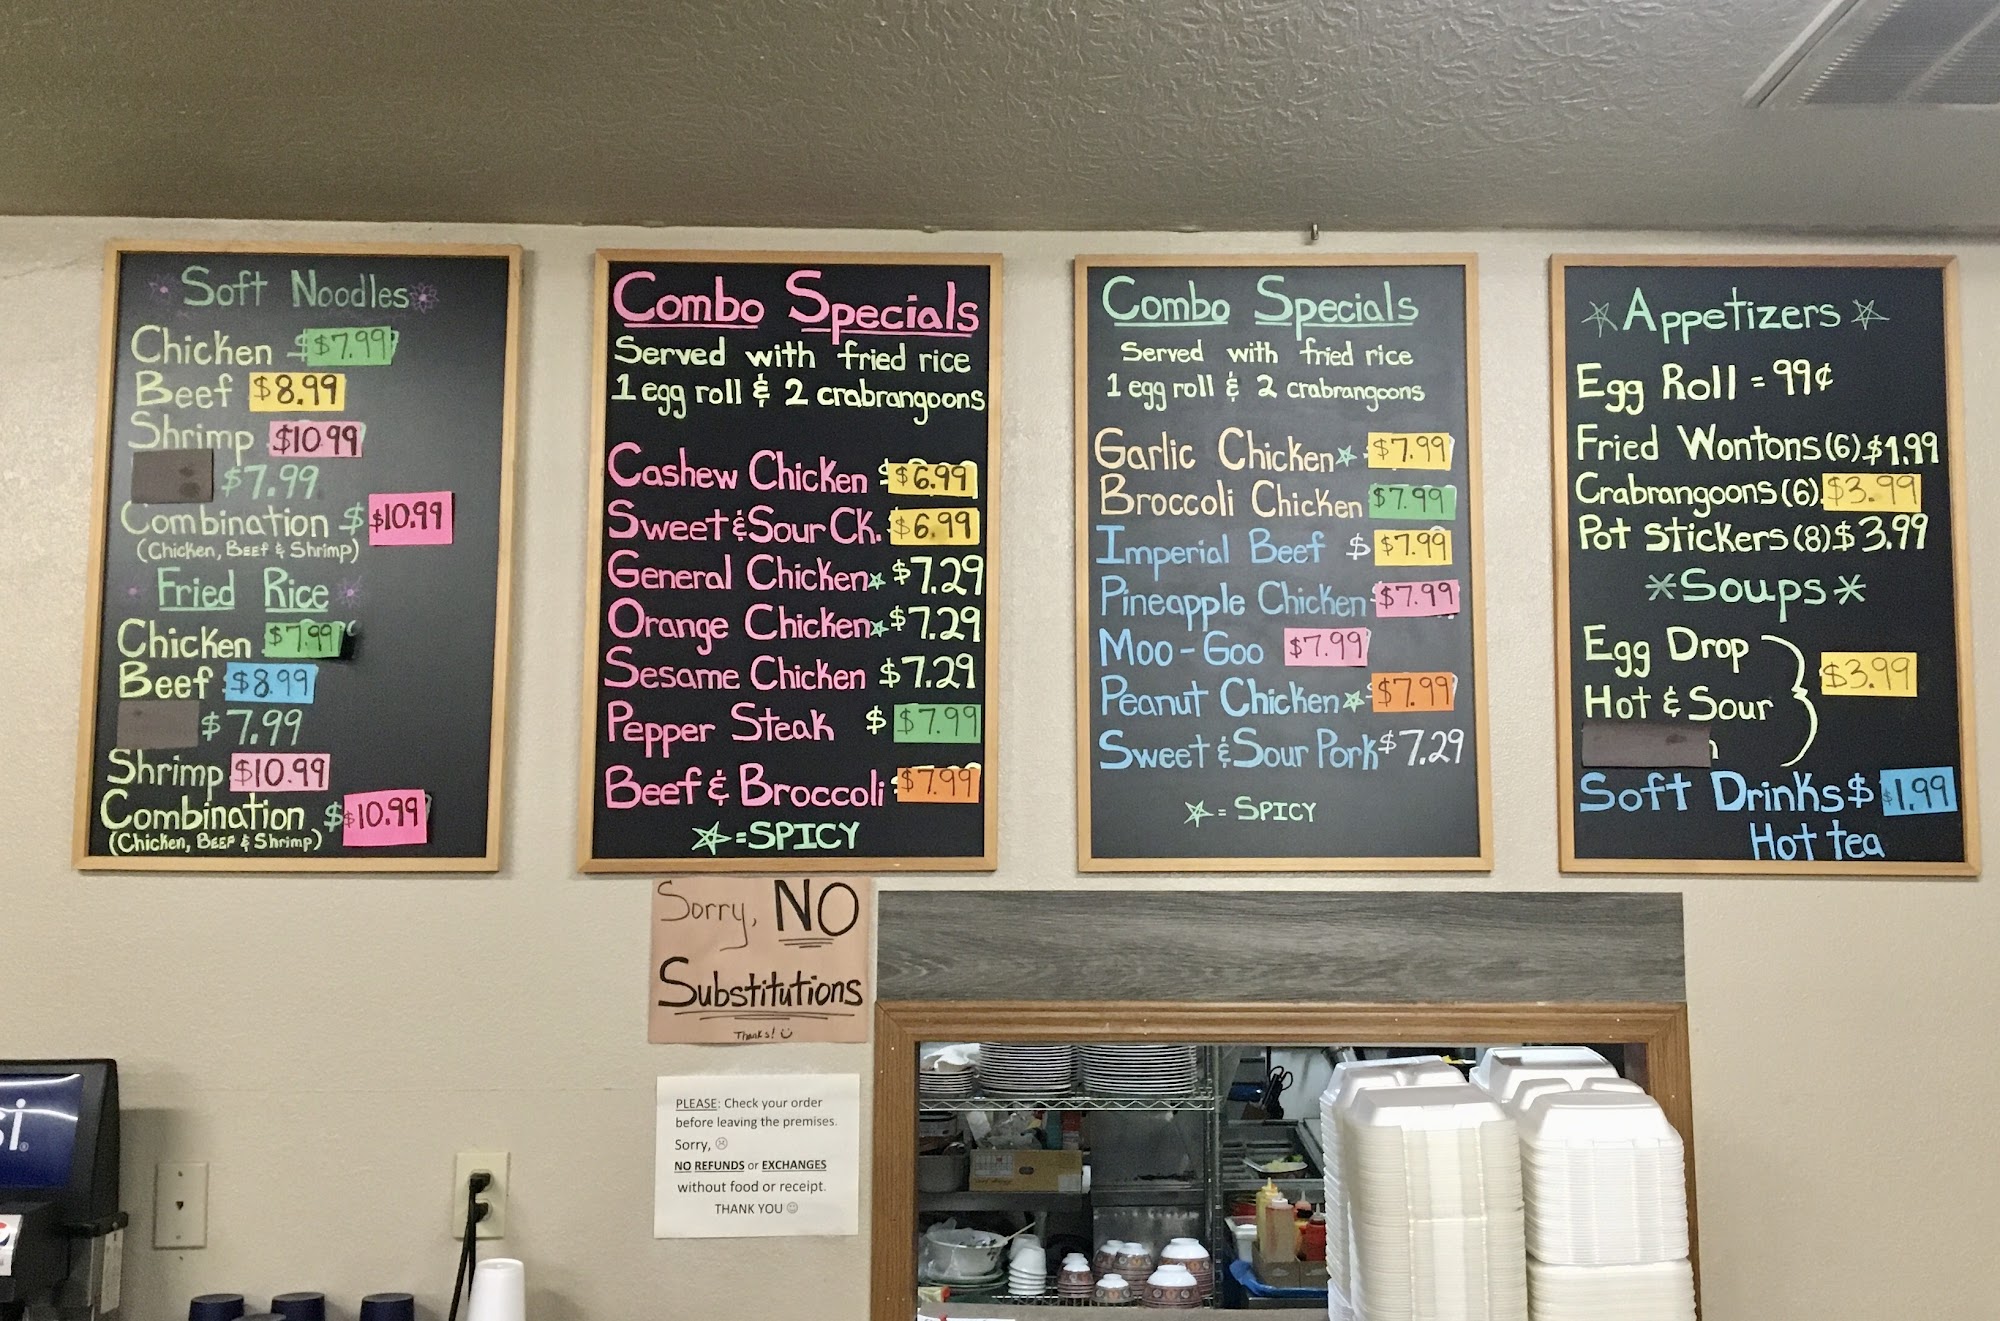 Soft Noodles
Chicken $7.99
Beef $8.99
Shrimp $10.99
$7.99
Combination $ $10.99
(Chicken, Beef & Shrimp)
Fried Rice
Chicken $7.99
Beef $8.99
$7.99
Shrimp $10.99
Combination $ $10.99
(Chicken, Beef & Shrimp)
Combo Specials
Served with fried rice
1 egg roll & 2 crabrangoons
Cashew Chicken $6.99
Sweet & Sour CK. $6.99
General Chicken $7.29
Orange Chicken $7.29
Sesame Chicken $7.29
Pepper Steak $ $7.99
Beef & Broccoli $7.99
= SPICY
Combo Specials
Served with fried rice
1 egg roll & 2 crabrangoons
Garlic Chicken $7.99
Broccoli Chicken $7.99
Imperial Beef $ $7.99
Pineapple Chicken $7.99
Moo-Goo $7.99
Peanut Chicken $7.99
Sweet & Sour Pork $7.29
= SPICY
Appetizers
Egg Roll = 99¢
Fried Wontons (6) $1.99
Crabrangoons (6) $3.99
Pot Stickers (8) $3.99
Soups
Egg Drop
Hot & Sour
$3.99
Soft Drinks $ $1.99
Hot tea
Sorry, NO
Substitutions
Thanks!
PLEASE: Check your order
before leaving the premises.
Sorry,
NO REFUNDS or EXCHANGES
without food or receipt.
THANK YOU